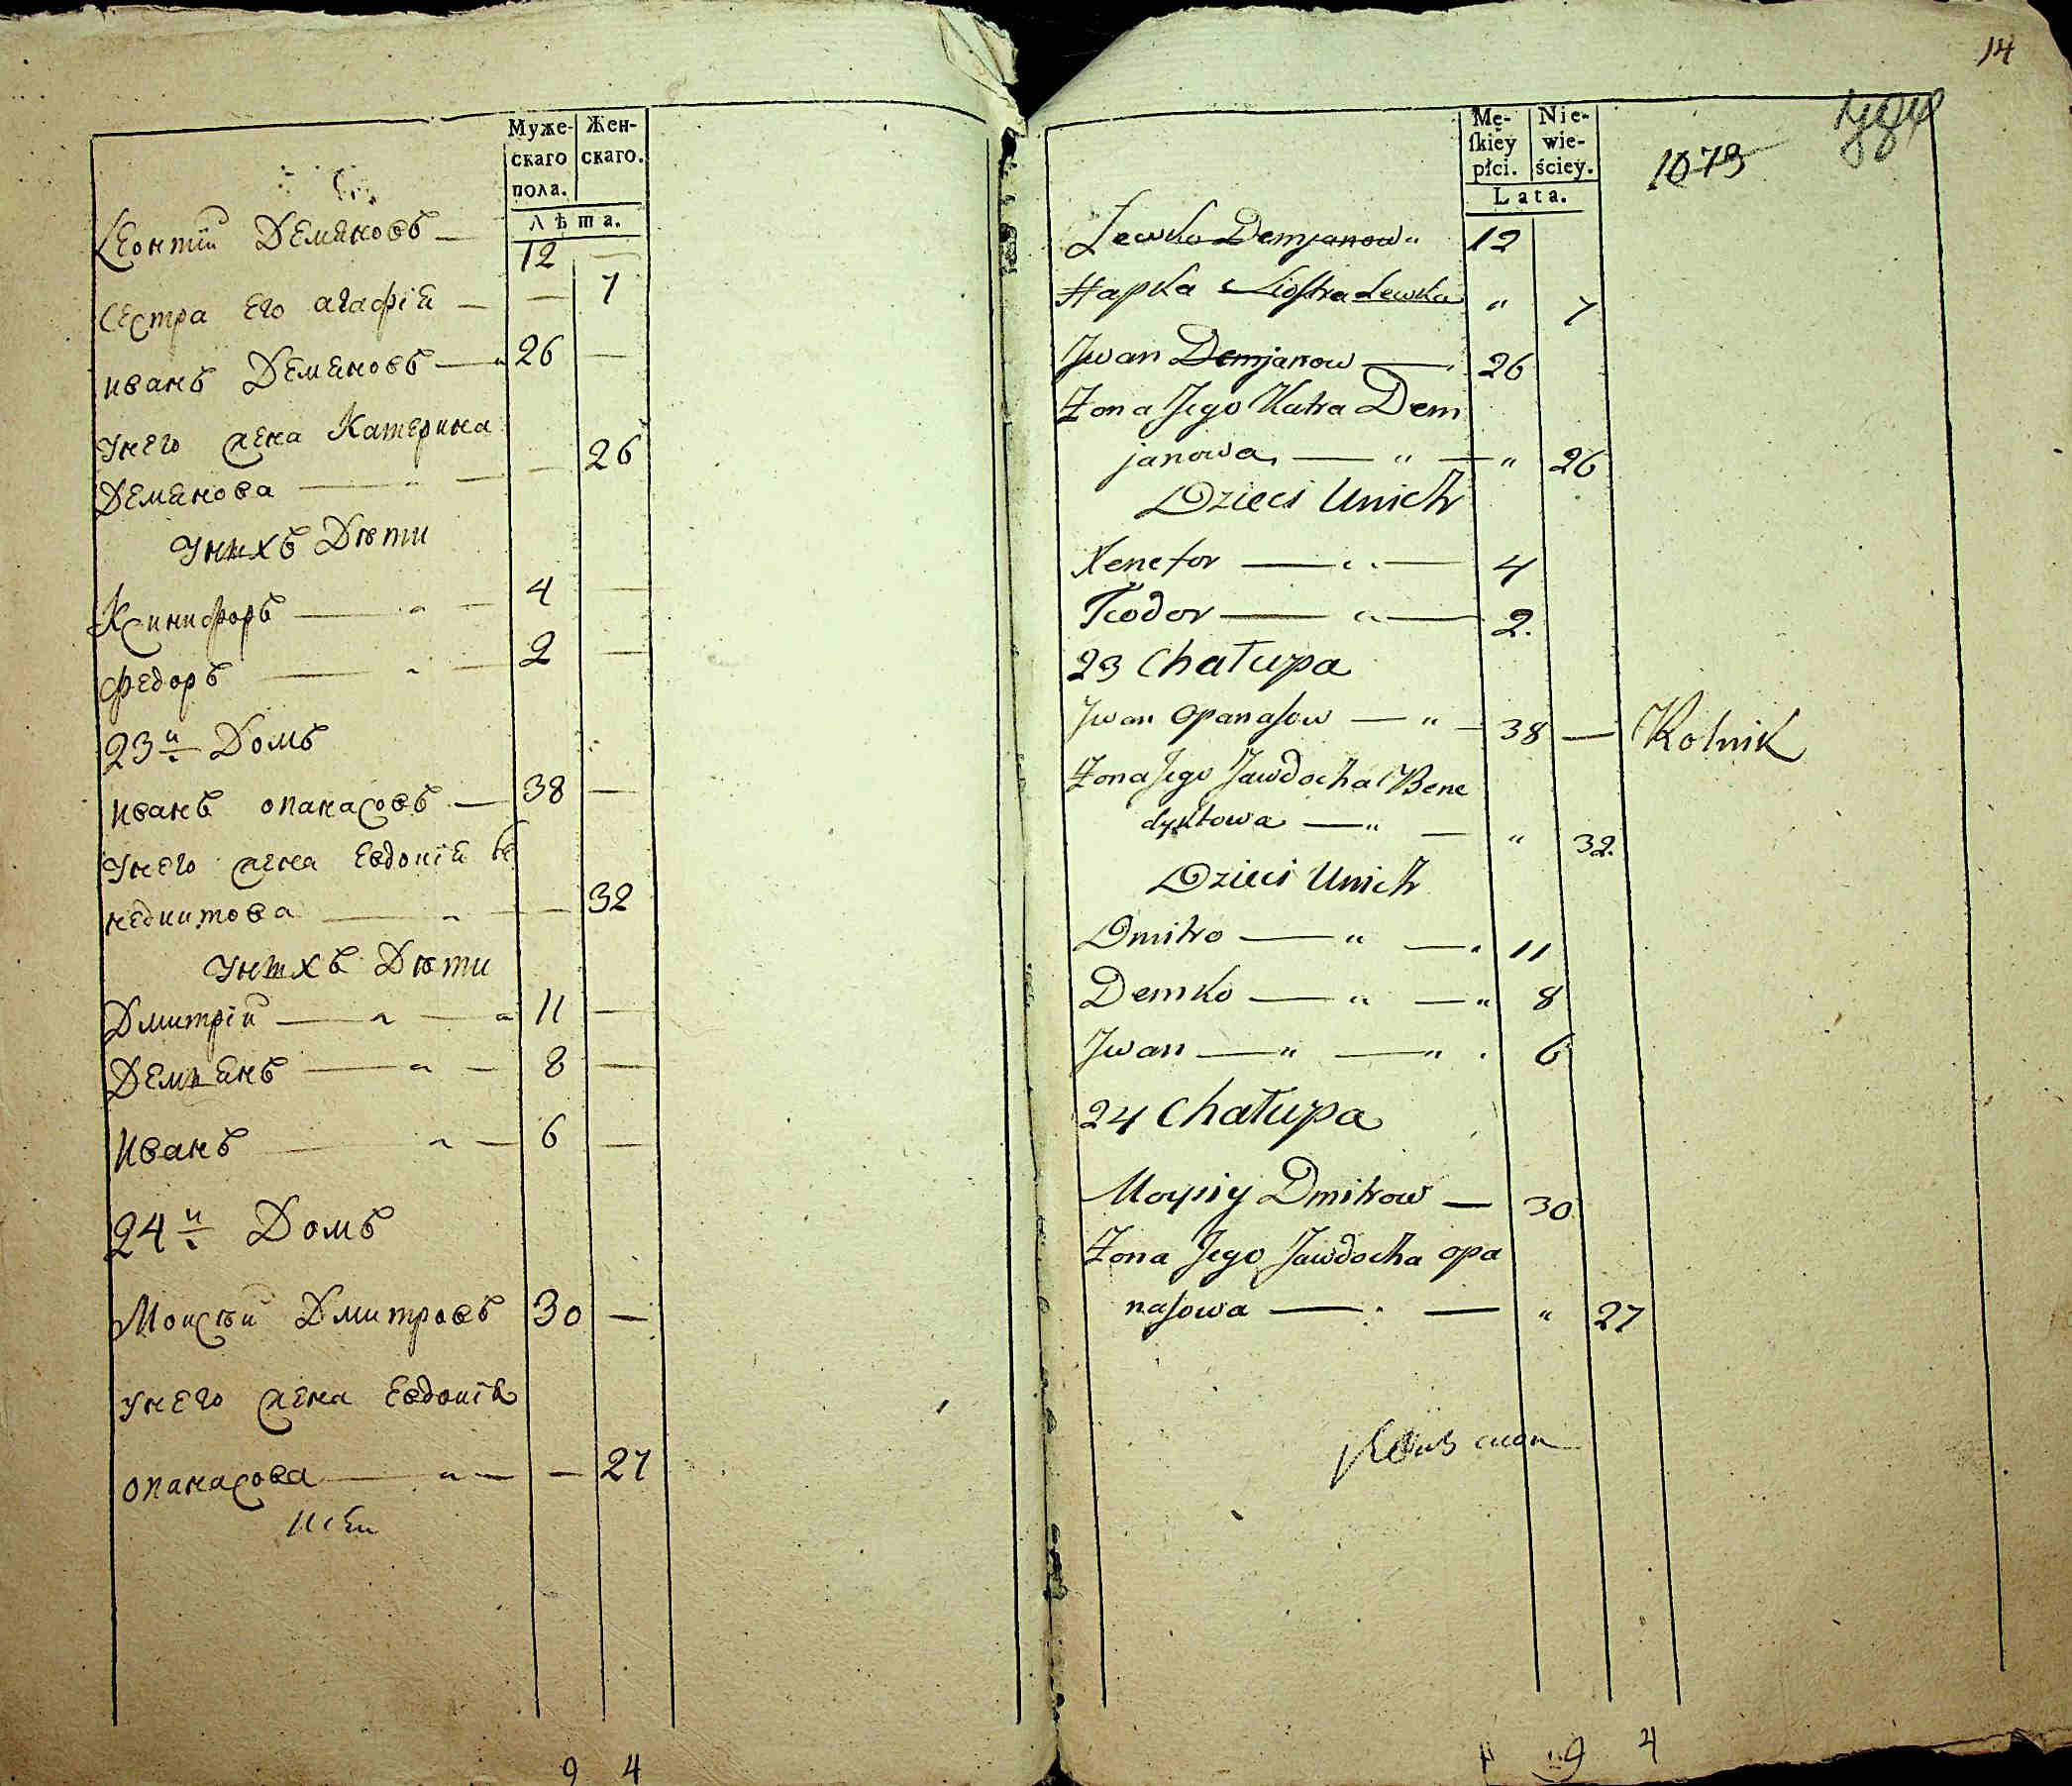 Муже- Жен-
скаго скаго.
пола.
Лѣта.
Леонтїй Демяновъ — 12 —
Сестра Его агафїя — — 7
иванъ Демяновъ — 26 —
Унего жена Катерина
Демянова — — — 26
Унихъ Дѣти
Ксинифоръ — — 4 —
Федоръ — — 2 —
23й Домъ
иванъ опанасовъ — 38 —
Унего жена Евдокїя Бе
недиктова — — — 32
Унихъ Дѣти
Дмитрїй — — 11 —
Демьянъ — — 8 —
Иванъ — — 6 —
24й Домъ
Моисѣй Дмитровъ 30 —
Унего жена Евдокїя
опанасова — — — 27
9 4
14
Mę- Nie-
ſkiey wie-
płci. ściey.
Lata.
1073
Lewko Demjanow " 12
Hapka Siostra Lewka " 7
Jwan Demjanow — 26
Żona Jego Katra Dem
janowa — " — " 26
Dzieci Unich
Xenefor — " — 4
Teodor — " — 2.
23 Chałupa
Jwan Opanasow — " — 38 — Rolnik
Żona Jego Jawdocha Bene
dyktowa — " — " 32.
Dzieci Unich
Dmitro — " — 11
Demko — " — " 8
Jwan — " — " 6
24 Chałupa
Moysiy Dmitrow — 30
Żona Jego Jawdocha opa
nasowa — " — " 27
9 4